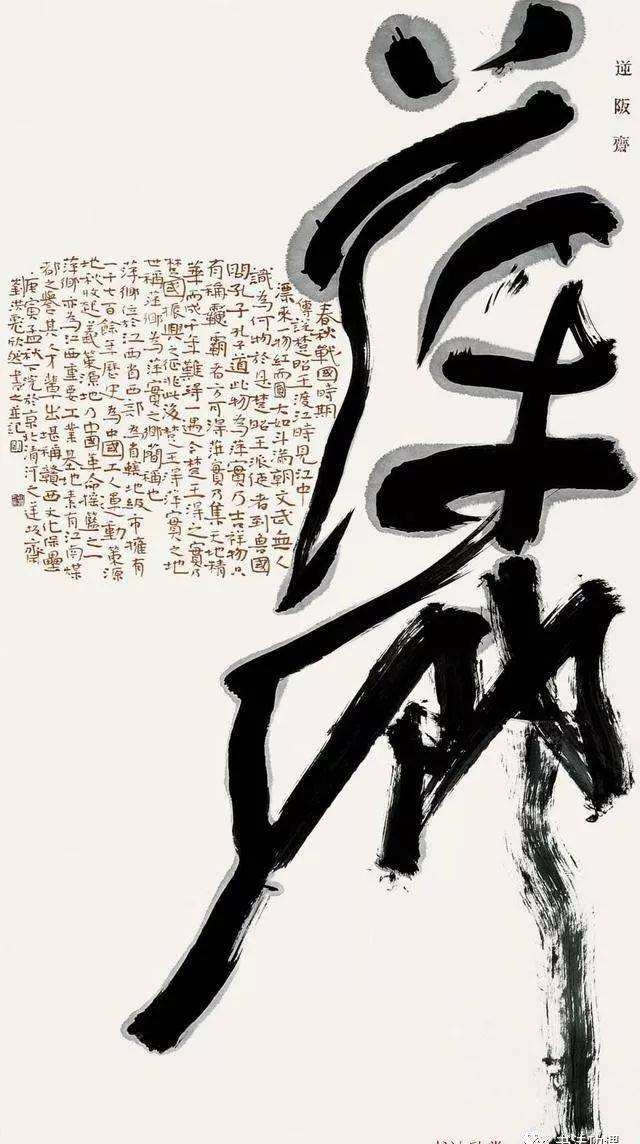 逆阪齋
萍鄉
春秋戰國時期
傳說楚昭王渡江時見江中
漂來一物紅而圓大如斗滿朝文武無人
識為何物於是楚昭王派使者到魯國
問孔子孔子道此物為萍實乃吉祥物只
有稱霸者方可得萍實乃集天地精
華而成千年難得一遇今楚王得之實乃
楚國振興之征兆此後楚王得萍實之地
世稱萍鄉為萍實之鄉簡稱也
萍鄉位於江西省西部為省轄地級市擁有
一千七百餘年歷史為中國工人運動策源
地秋收起義策源地乃中國革命搖籃之一
萍鄉亦為江西重要工業基地素有江南煤
都之譽其人才輩出堪稱贛西文化保壘
庚寅孟秋下浣於京北清河之逆阪齋
劉洪彪欣然書之並記